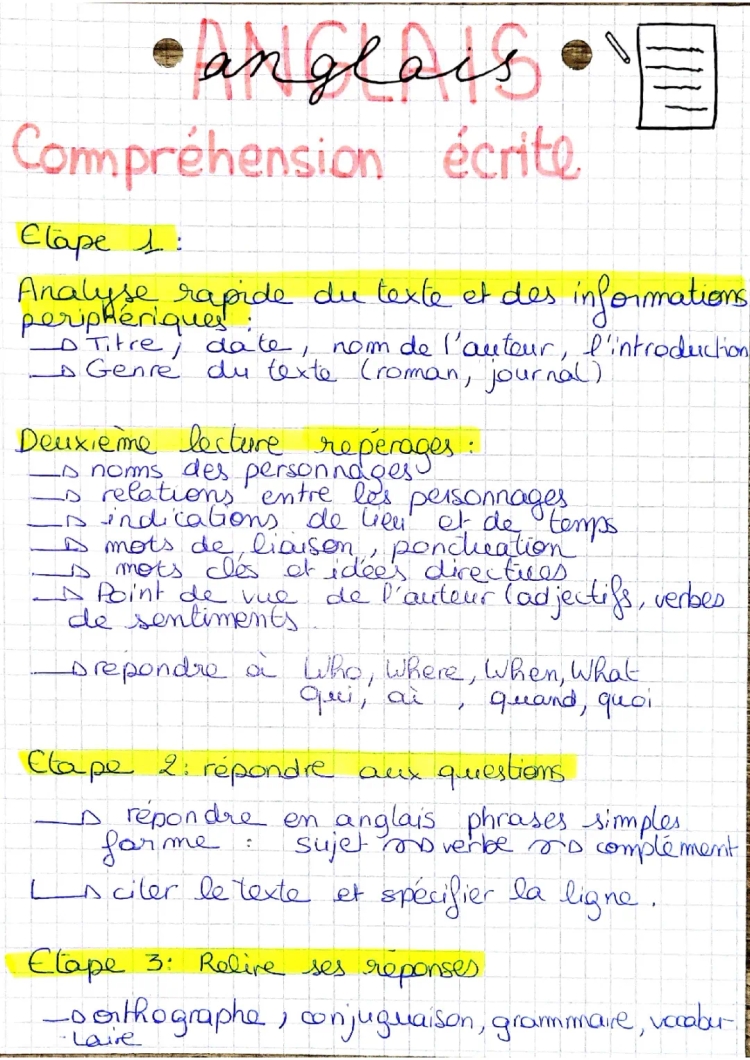 ANGLAIS
anglais
Compréhension écrite
Etape 1 :
Analyse rapide du texte et des informations
periphériques :
→ Titre, date, nom de l'auteur, l'introduction
→ Genre du texte (roman, journal)
Deuxième lecture repérages :
→ noms des personnages
→ relations entre les personnages
→ indications de lieu et de temps
→ mots de liaison, ponctuation
→ mots clés et idées directives
→ Point de vue de l'auteur (adjectifs, verbes
de sentiments
→ repondre à Who, Where, When, What
Qui, où, quand, quoi
Etape 2 : répondre aux questions
→ répondre en anglais phrases simples
forme : sujet → verbe → complément
→ citer le texte et spécifier la ligne.
Etape 3 : Relire ses réponses
→ orthographe, conjuguaison, grammaire, vocabu-
laire